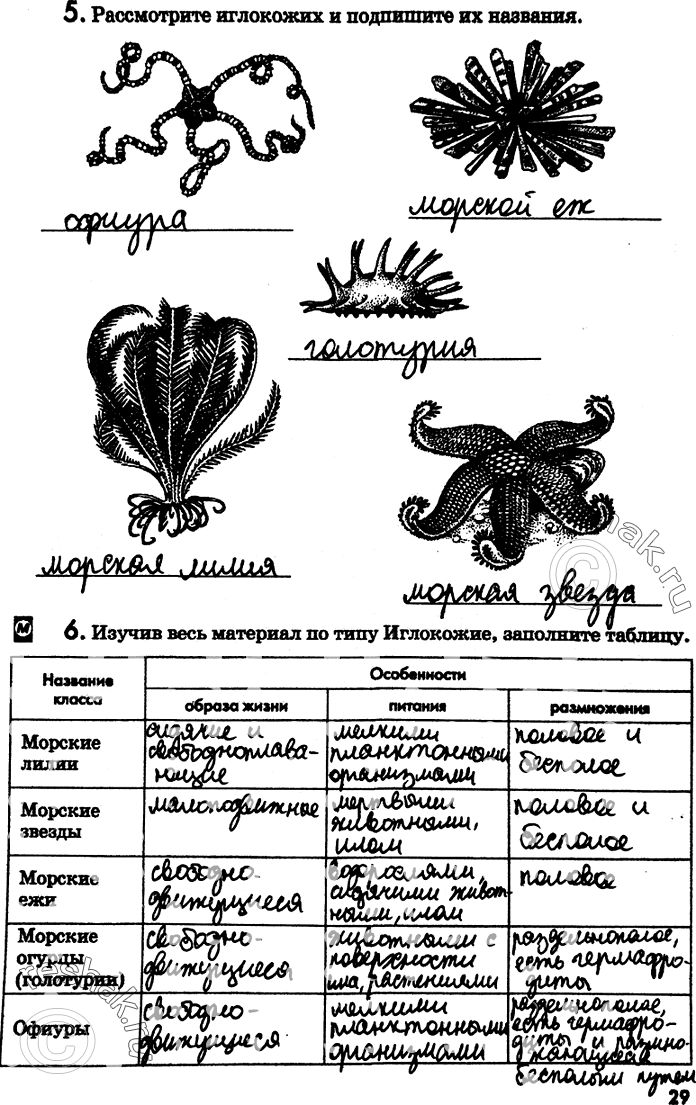 5. Рассмотрите иглокожих и подпишите их названия.
офиура
морской еж
голотурия
морская лилия
морская звезда
М 6. Изучив весь материал по типу Иглокожие, заполните таблицу.
Название класса
Особенности
образа жизни
питания
размножения
Морские
лилии
сидячие и
свободноплава-
ющие
мелкими
планктонными
организмами
половое и
бесполое
Морские
звезды
малоподвижные
мертвыми
животными,
илом
половое и
бесполое
Морские
ежи
свободно-
движущиеся
водорослями,
сидячими живот-
ными, илом
половое
Морские
огурцы
(голотурии)
свободно-
движущиеся
животными с
поверхности
ила, растениями
раздельнополое,
есть гермафро-
диты
Офиуры
свободно-
движущиеся
мелкими
планктонными
организмами
раздельнополое,
есть гермафро-
диты и размно-
жающиеся
бесполым путем
29